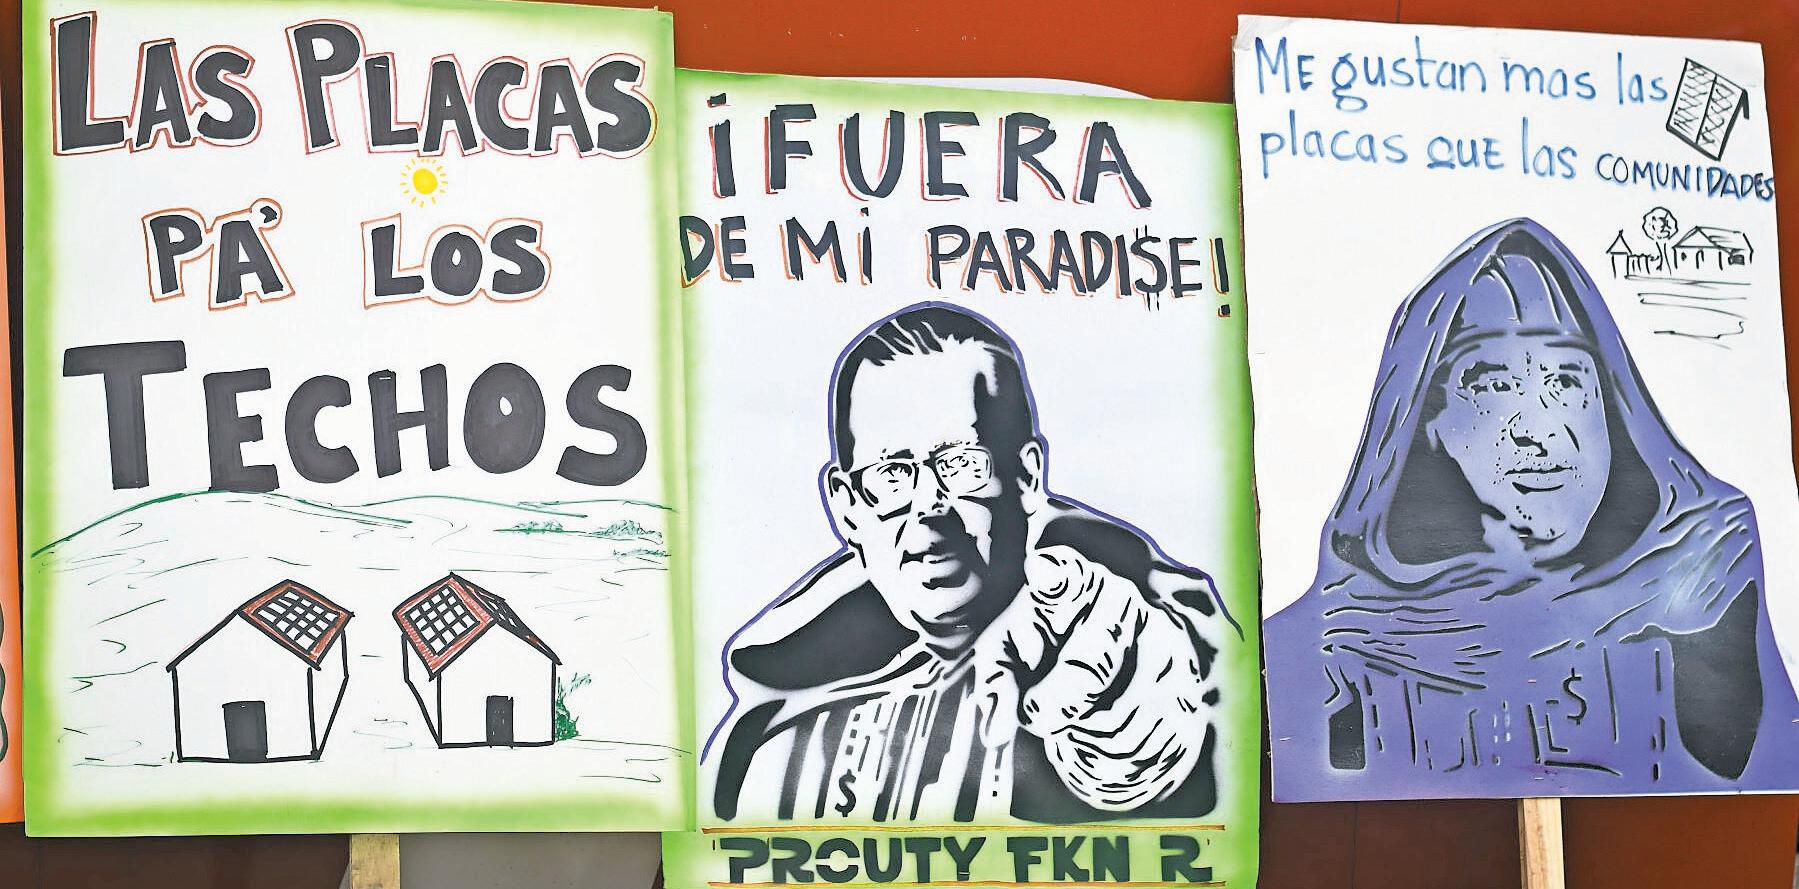 LAS PLACAS
PA' LOS
TECHOS
¡FUERA
DE Mi PARADI$E!
$
PROUTY FKN R
ME gustan mas las
placas QUE las COMUNIDADES
$